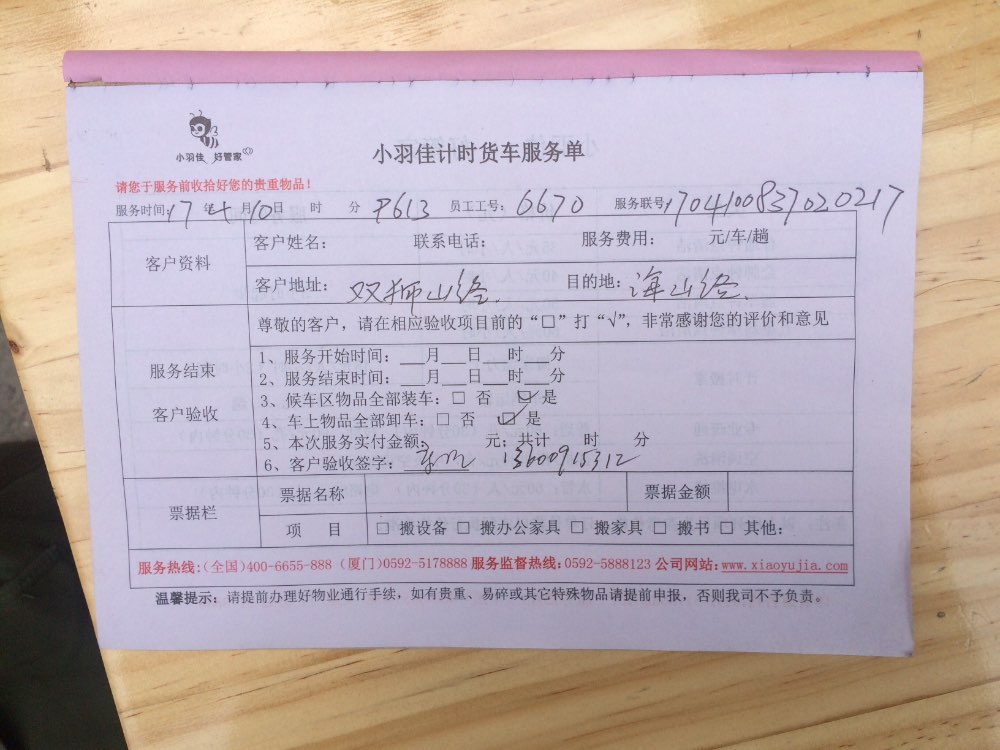 小羽佳 好管家
小羽佳计时货车服务单
请您于服务前收拾好您的贵重物品！
服务时间：17年4月10日 时 分 P613 员工工号：6670 服务联号：1704100837020217
客户资料
客户姓名： 联系电话： 服务费用： 元/车/趟
客户地址： 双狮山经 目的地： 海山经
尊敬的客户，请在相应验收项目前的“□”打“√”，非常感谢您的评价和意见
服务结束
客户验收
1、服务开始时间：___月___日___时___分
2、服务结束时间：___月___日___时___分
3、候车区物品全部装车：□ 否 ☑ 是
4、车上物品全部卸车：□ 否 ☑ 是
5、本次服务实付金额： 元；共计 时 分
6、客户验收签字： 13600915312
票据栏
票据名称 票据金额
项 目 □ 搬设备 □ 搬办公家具 □ 搬家具 □ 搬书 □ 其他：
服务热线：(全国)400-6655-888 (厦门)0592-5178888 服务监督热线：0592-5888123 公司网站：www.xiaoyujia.com
温馨提示：请提前办理好物业通行手续，如有贵重、易碎或其它特殊物品请提前申报，否则我司不予负责。